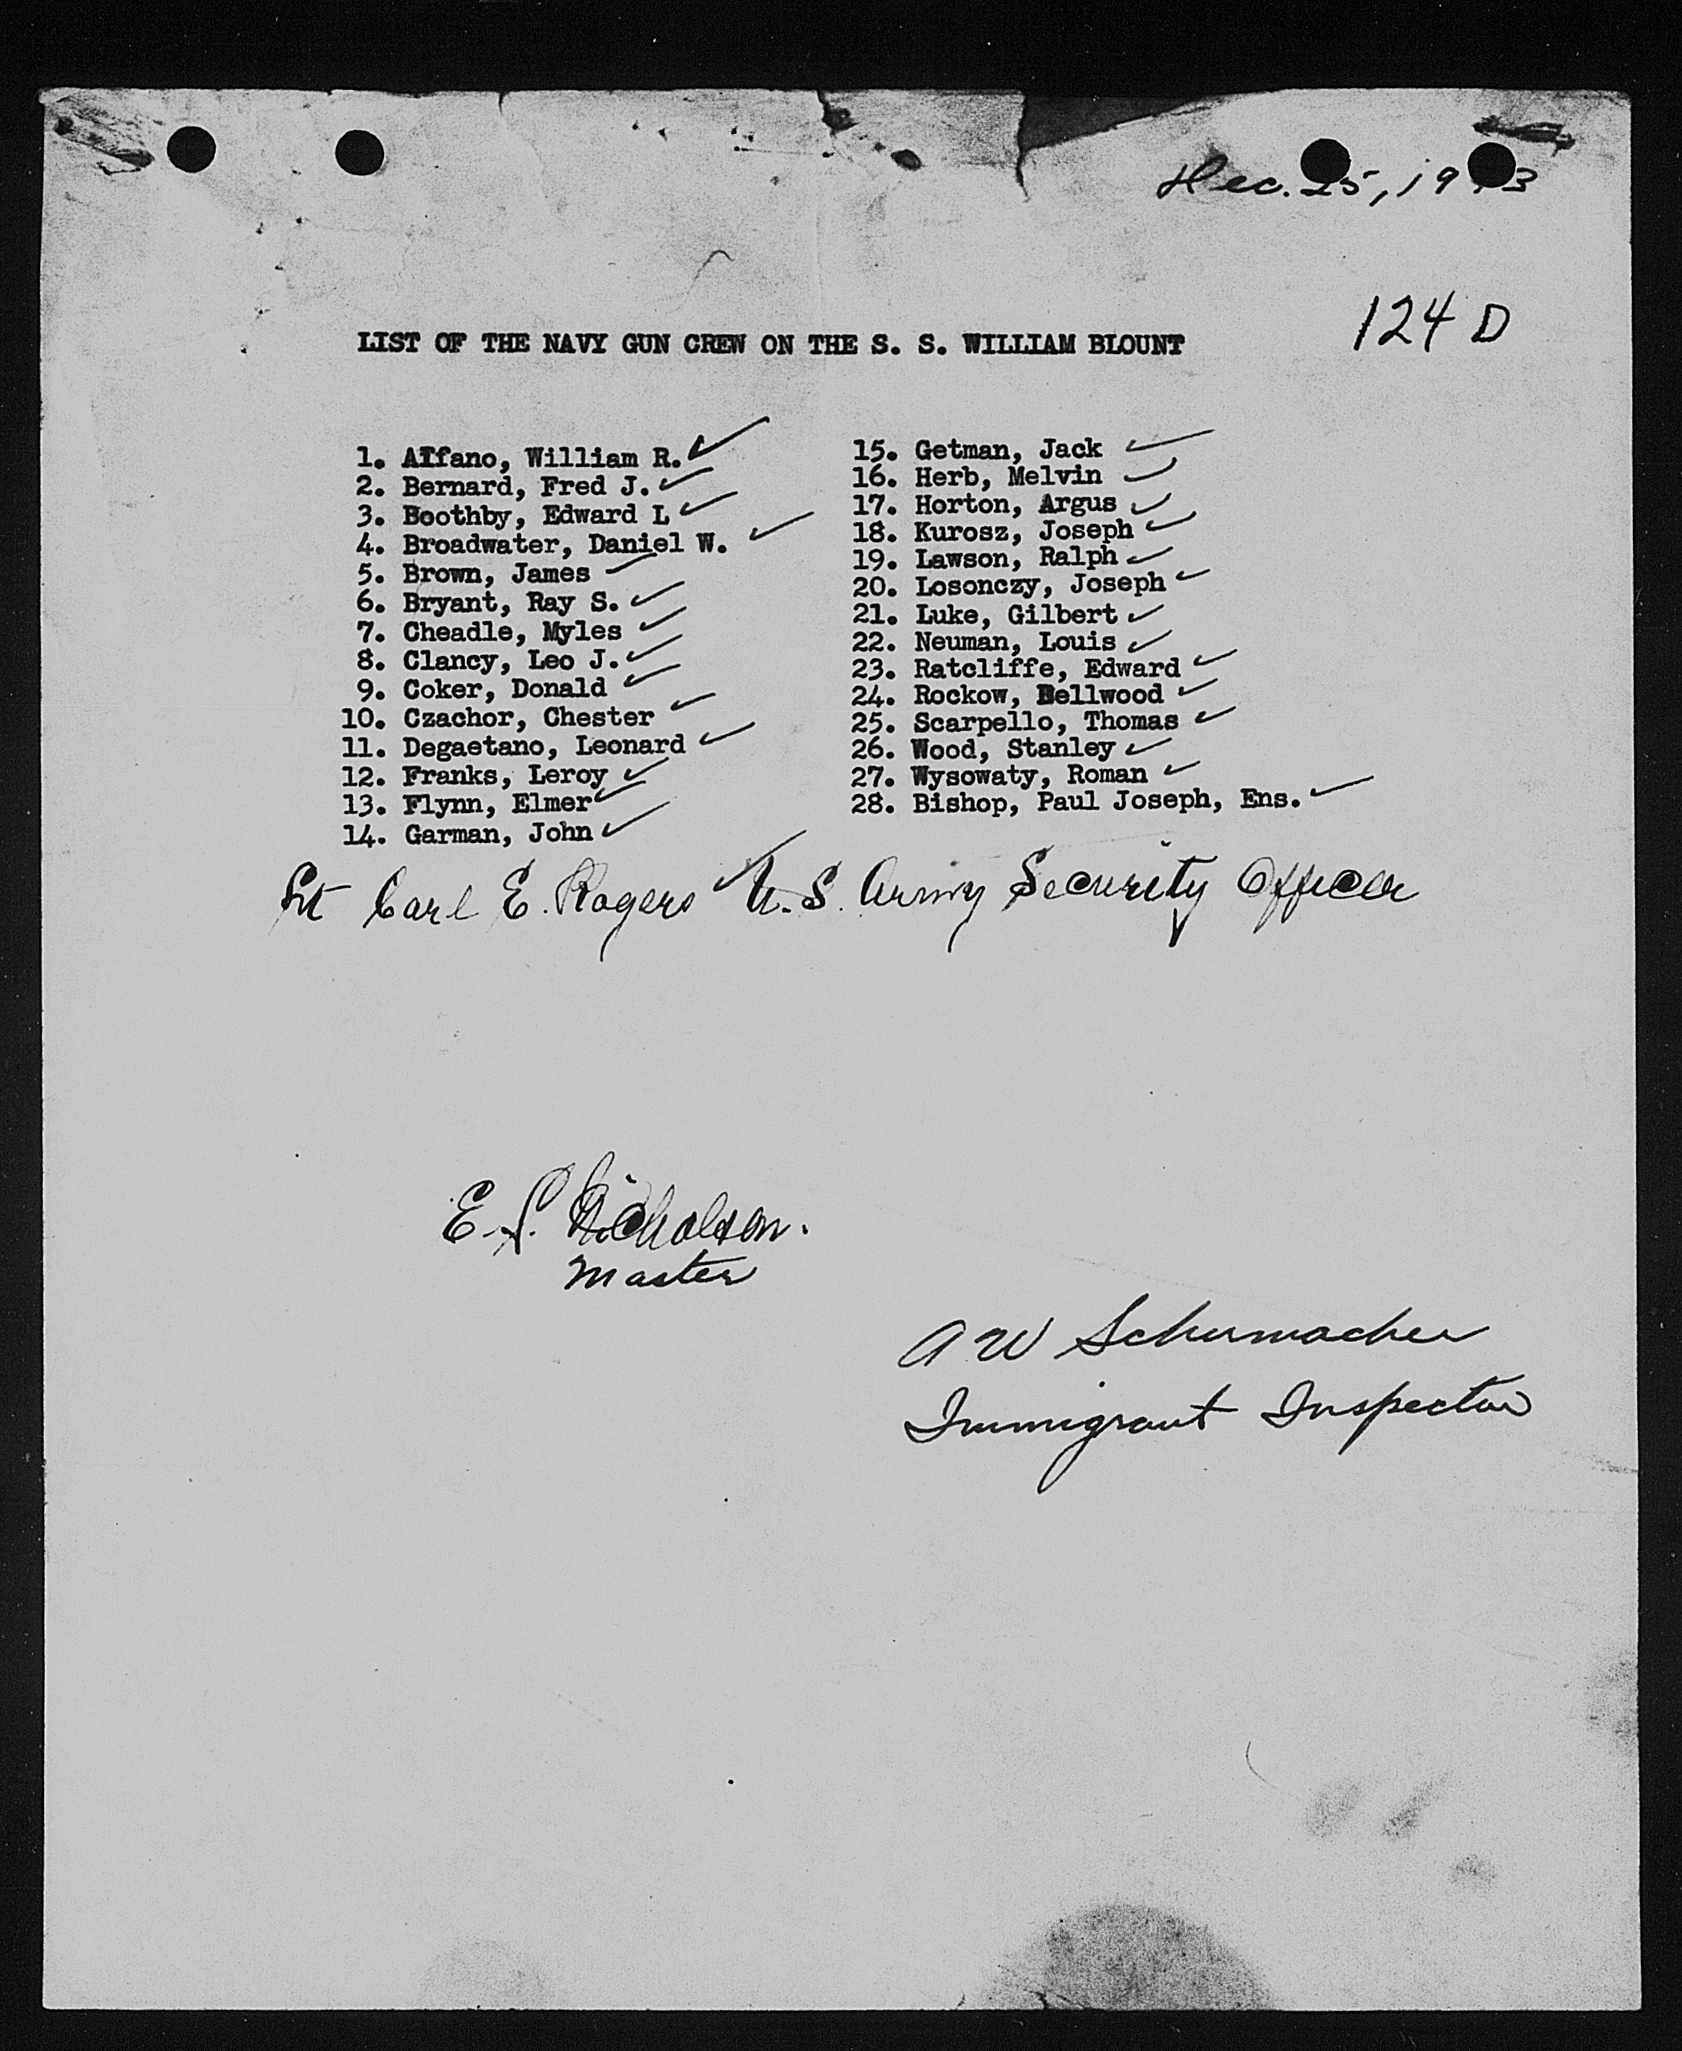 Dec. 25, 1943
124 D
LIST OF THE NAVY GUN CREW ON THE S. S. WILLIAM BLOUNT
1. Alfano, William R. ✓
2. Bernard, Fred J. ✓
3. Boothby, Edward L ✓
4. Broadwater, Daniel W. ✓
5. Brown, James ✓
6. Bryant, Ray S. ✓
7. Cheadle, Myles ✓
8. Clancy, Leo J. ✓
9. Coker, Donald ✓
10. Czachor, Chester ✓
11. Degaetano, Leonard ✓
12. Franks, Leroy ✓
13. Flynn, Elmer ✓
14. Garman, John ✓
15. Getman, Jack ✓
16. Herb, Melvin ✓
17. Horton, Argus ✓
18. Kurosz, Joseph ✓
19. Lawson, Ralph ✓
20. Losonczy, Joseph ✓
21. Luke, Gilbert ✓
22. Neuman, Louis ✓
23. Ratcliffe, Edward ✓
24. Rockow, Dellwood ✓
25. Scarpello, Thomas ✓
26. Wood, Stanley ✓
27. Wysowaty, Roman ✓
28. Bishop, Paul Joseph, Ens. ✓
Lt Carl E. Rogers ✓ U.S. Army Security Officer
E. S. Nicholson.
Master
A W Schumacher
Immigrant Inspector